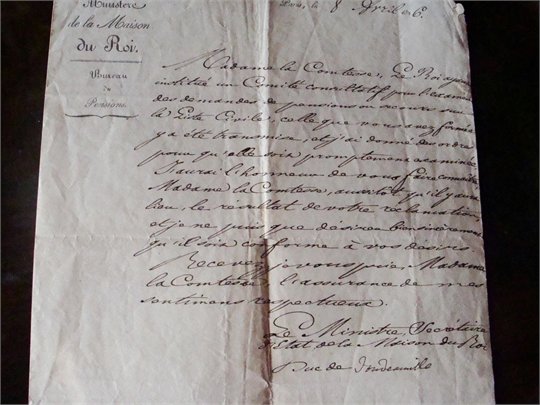 Ministère
de la Maison
du Roi.
Bureau
des
Pensions.
Paris, le 8 Avril
Madame la Comtesse, Le Roi ayant
institué un Comité consultatif pour l'examen
des demandes de pensions ou secours sur
la Liste Civile, celle que vous avez formée
y a été transmise, et j'ai donné des ordres
pour qu'elle soit promptement examinée.
J'aurai l'honneur de vous faire connaître,
Madame la Comtesse, aussitôt qu'il y aura
lieu, le résultat de votre réclamation,
et je ne puis que désirer bien sincèrement
qu'il soit conforme à vos désirs.
Recevez, je vous prie, Madame
la Comtesse, l'assurance de mes
sentimens respectueux.
Le Ministre, Secrétaire
d'Etat de la Maison du Roi
Duc de Doudeauville